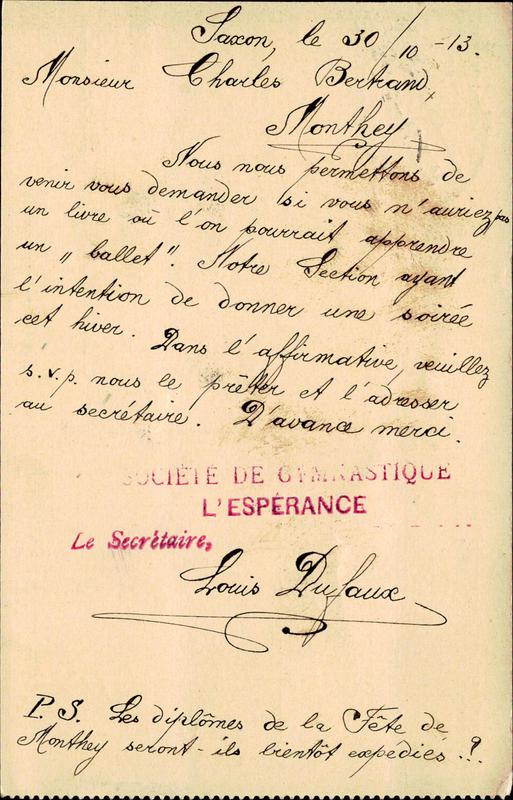 Saxon, le 30/10 - 13.
Monsieur Charles Bertrand,
Monthey
Nous nous permettons de
venir vous demander si vous n'auriez pas
un livre où l'on pourrait apprendre
un „ ballet". Notre Section ayant
l'intention de donner une soirée
cet hiver. Dans l'affirmative, veuillez
s.v.p. nous le prêter et l'adresser
au secrétaire. D'avance merci.
SOCIÉTÉ DE GYMNASTIQUE
L'ESPÉRANCE
Le Secrétaire,
Louis Dufaux
P.S. Les diplômes de la Fête de
Monthey seront-ils bientôt expédiés ..?